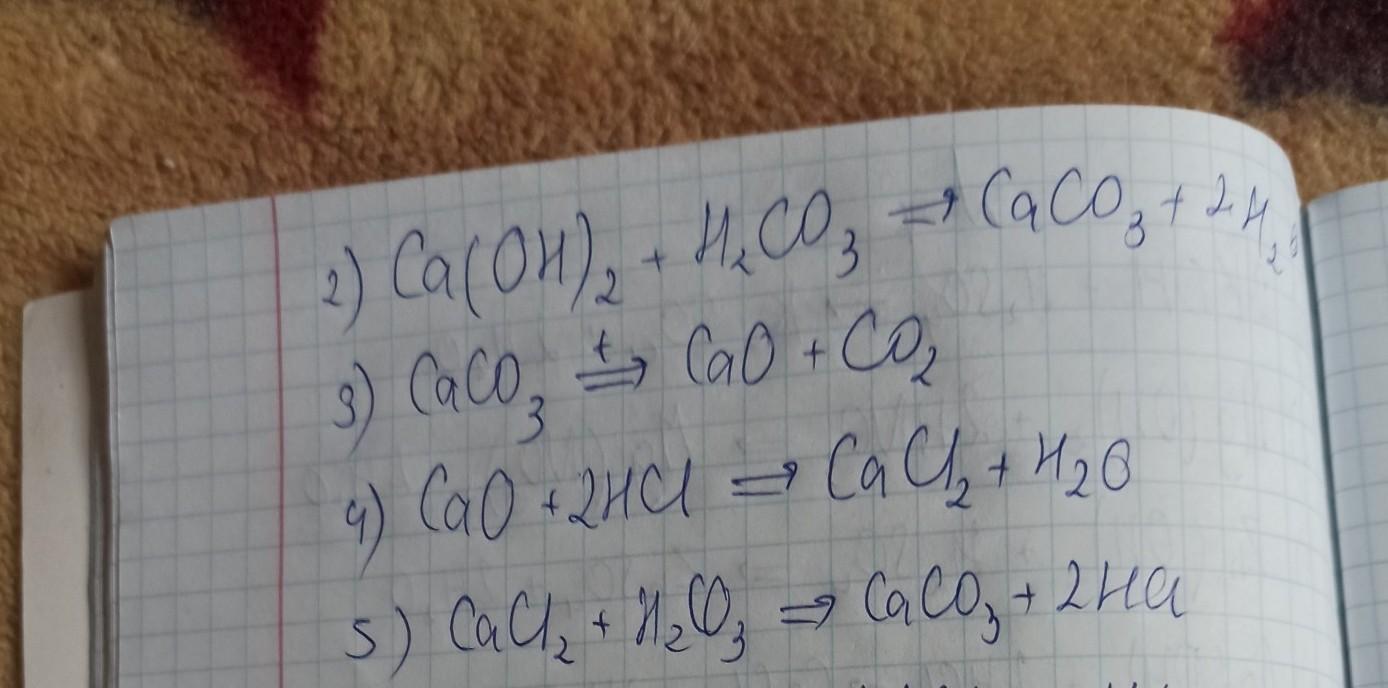 2) Ca(OH)₂ + H₂CO₃ ⇒ CaCO₃ + 2H₂O
3) CaCO₃ =t⇒ CaO + CO₂
4) CaO + 2HCl ⇒ CaCl₂ + H₂O
5) CaCl₂ + H₂CO₃ ⇒ CaCO₃ + 2HCl